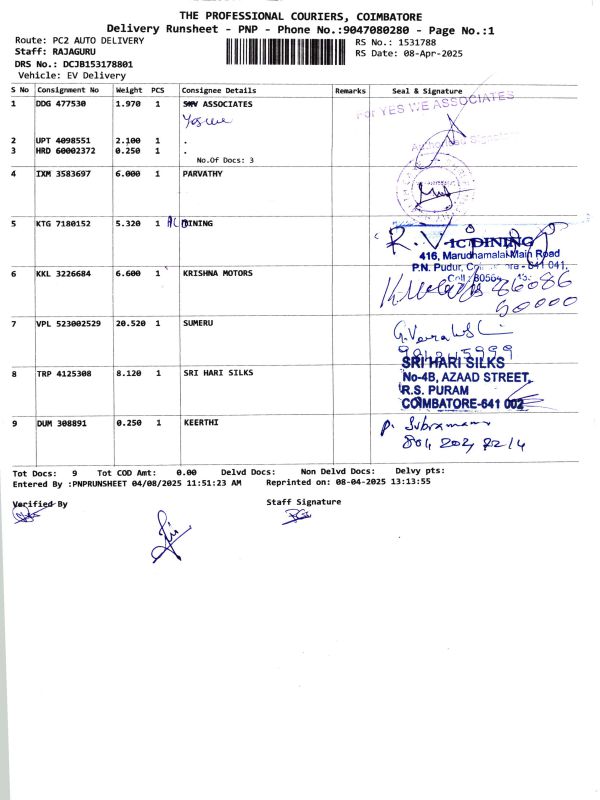 THE PROFESSIONAL COURIERS, COIMBATORE
Delivery Runsheet - PNP - Phone No.:9047080280 - Page No.:1
Route: PC2 AUTO DELIVERY
RS No.: 1531788
Staff: RAJAGURU
RS Date: 08-Apr-2025
DRS No.: DCJB153178801
Vehicle: EV Delivery
S No Consignment No Weight PCS Consignee Details Remarks Seal & Signature
1 DDG 477530 1.970 1 ASSOCIATES
For YES WE ASSOCIATES
Yes we
Authorised Signatory
2 UPT 4098551 2.100 1 .
3 HRD 60002372 0.250 1 .
No.Of Docs: 3
4 IXM 3583697 6.000 1 PARVATHY
5 KTG 7180152 5.320 1 DINING
R.V
IC DINING
416, Marudhamalai Main Road
P.N. Pudur, 641 041.
6 KKL 3226684 6.600 1 KRISHNA MOTORS
86086
50000
7 VPL 523002529 20.520 1 SUMERU
8 TRP 4125308 8.120 1 SRI HARI SILKS
SRI HARI SILKS
No-4B, AZAAD STREET,
R.S. PURAM
COIMBATORE-641 002
9 DUM 308891 0.250 1 KEERTHI
Tot Docs: 9 Tot COD Amt: 0.00 Delvd Docs: Non Delvd Docs: Delvy pts:
Entered By :PNPRUNSHEET 04/08/2025 11:51:23 AM Reprinted on: 08-04-2025 13:13:55
Verified By
Staff Signature